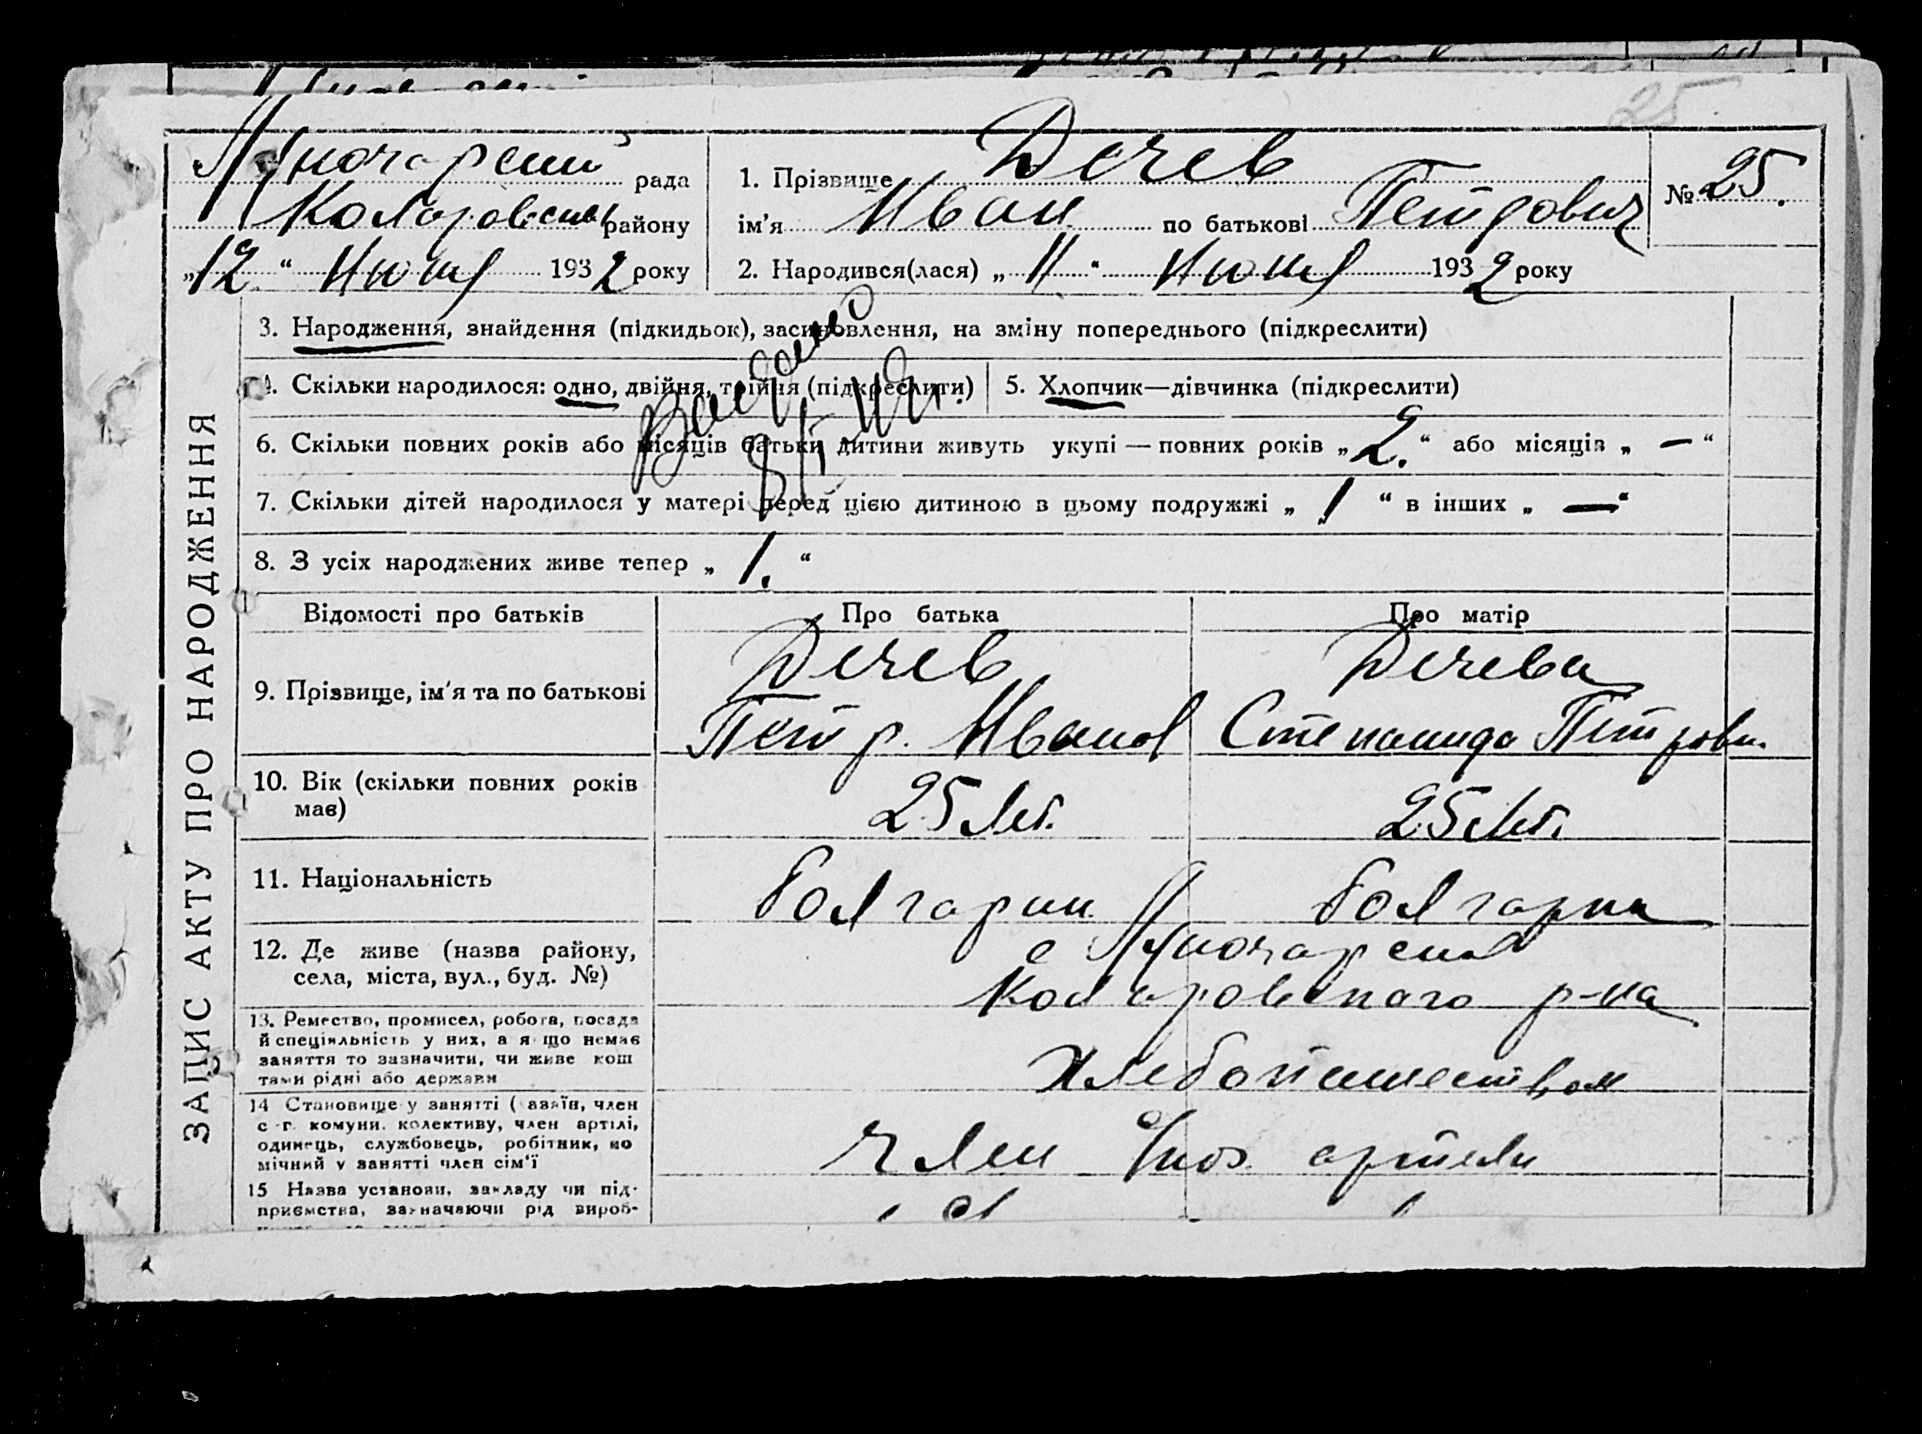 25
Луночарский рада
Коларовский району
„12“ Июня 1932 року
1. Прізвище Дечев
ім'я Иван по батькові Петрович
№ 25.
2. Народився(лася) „11“ Июня 1932 року
3. Народження, знайдення (підкидьок), засиновлення, на зміну попереднього (підкреслити)
4. Скільки народилося: одно, двійня, трійня (підкреслити)
5. Хлопчик—дівчинка (підкреслити)
6. Скільки повних років або місяців батьки дитини живуть укупі — повних років „2.“ або місяців „—“
7. Скільки дітей народилося у матері перед цією дитиною в цьому подружжі „1“ в інших „—“
8. З усіх народжених живе тепер „1.“
ЗАПИС АКТУ ПРО НАРОДЖЕННЯ
Відомості про батьків
Про батька
Про матір
9. Прізвище, ім'я та по батькові
Дечев
Петр. Иванов
Дечева
Степанида Петровн.
10. Вік (скільки повних років
має)
25 лет.
25 лет.
11. Національність
болгарин
болгарка
12. Де живе (назва району,
села, міста, вул., буд. №)
с Луночарск
Коларовского р-на
13. Ремество, промисел, робота, посада
й спеціяльність у них, а якщо немає
заняття то зазначити, чи живе кош
тами рідні або держави
Хлебопашеством
14 Становище у занятті (хазяїн, член
с-г. комуни, колективу, член артілі,
одинець, службовець, робітник, по
мічний у занятті член сім'ї
член артели
15 Назва установи, закладу чи під-
приємства, зазначаючи рід вироб-